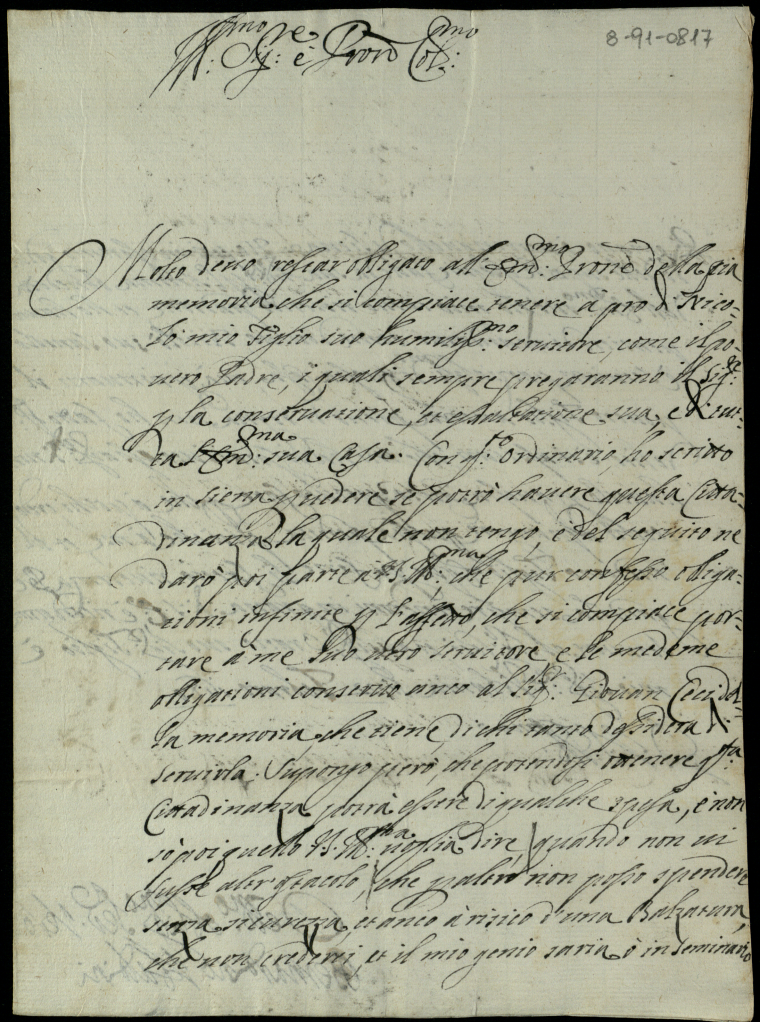 Ill:mo Sig:re e Pron Col:mo
8-91-0817
Molto devo restar obligato all' Em:mo Prone della pia
memoria che si compiace tenere à pro di Nico-
lò mio Figlio suo humiliss:mo servitore, come il po-
vero Padre, i quali sempre pregaranno il Sig:re
p la conservatione, et esaltatione sua, e di tut-
ta l'Em:ma sua Casa. Con q:to ordinario, ho scritto
in siena p vedere se potrò havere questa Citta-
dinanza, la quale non tengo, e del seguito ne
darò poi parte a V.S. Ill:ma, che pur confesso obliga-
tioni infinite p l'affetto, che si compiace por-
tare à me suo vero servitore, e le medeme
obligationi conservo anco al Sig:r Giovan
la memoria, che tiene, di chi tanto desidera
servirla. Supongo però, che potendosi ottenere q:ta
Cittadinanza, potrà essere di qualche spesa, e non
sò poi quello V.S. Ill:ma voglia dire, quando non vi
fusse altr'ostacolo, che p altro non posso spendere
senza sicurezza, et anco à risico d'una Balzatura,
che non crederei, et il mio genio saria ò in seminario